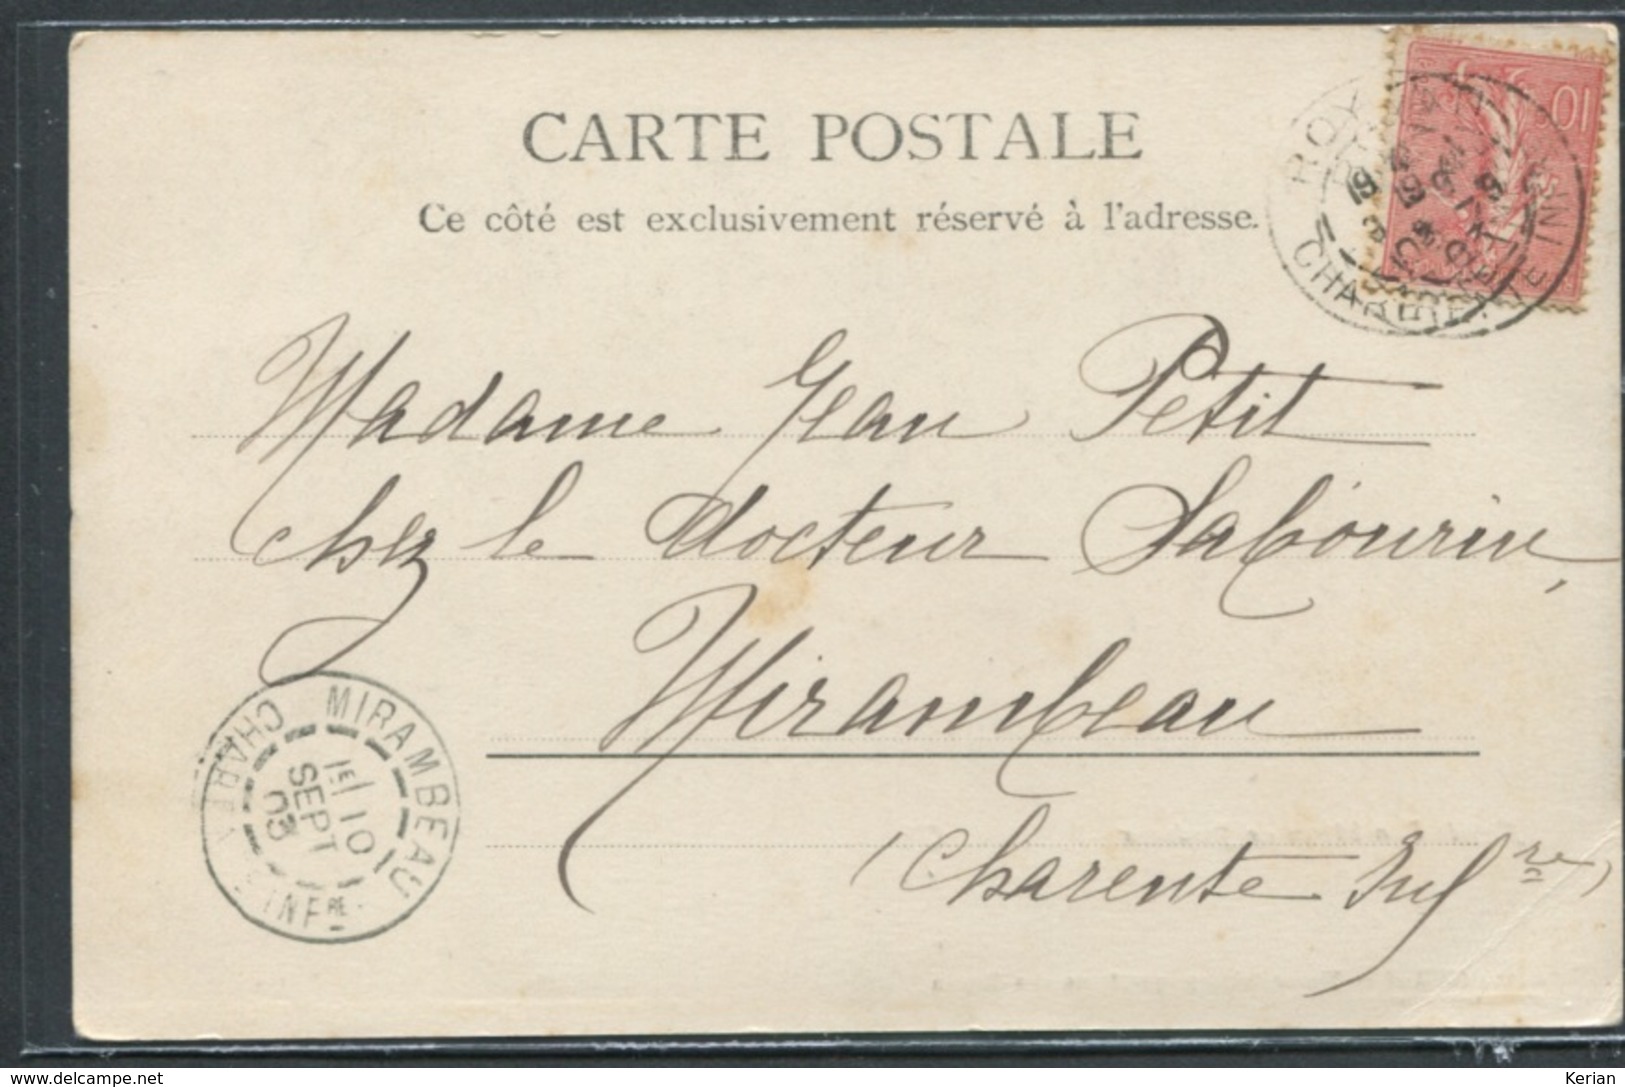 CARTE POSTALE
Ce côté est exclusivement réservé à l'adresse.
10
CHARENTE INFRE
Madame Jean Petit
chez le docteur Sabourin,
Mirambeau
(Charente Infre)
MIRAMBEAU
1E / 10
SEPT
03
INFRE
delcampe.net
Kerian